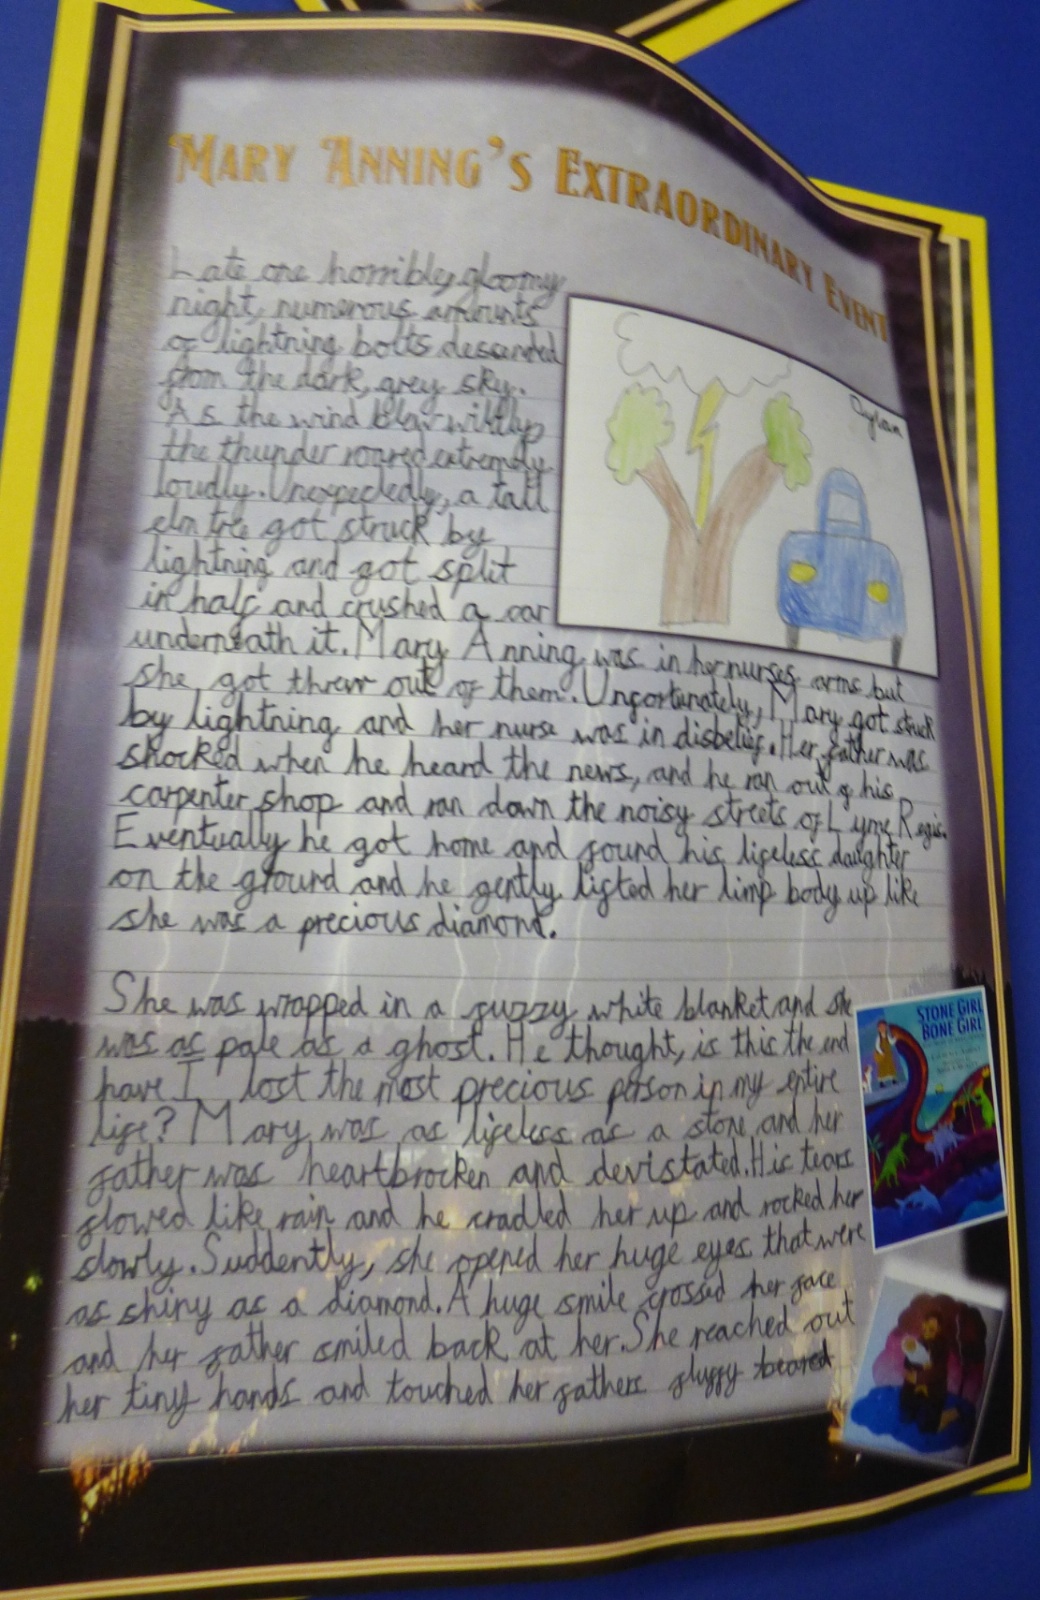 MARY ANNING'S EXTRAORDINARY EVENT
Late one horribley gloomy
night, numerous amounts
of lightning bolts descended
from the dark, grey sky.
As the wind blew
the thunder roared extremely
loudly. Unexpectedly, a tall
elm tree got struck by
lightning and got split
in half and crushed a car
underneath it. Mary Anning was in her nurses arms but
she got threw out of them. Unfortunately, Mary got struck
by lightning and her nurse was in disbelief. Her father was
shocked when he heard the news, and he ran out of his
carpenter shop and ran down the noisy streets of Lyme Regis.
Eventually he got home and found his lifeless daughter
on the ground and he gently lifted her limp body up like
she was a precious diamond.
She was wrapped in a fuzzy white blanket and she
was as pale as a ghost. He thought, is this the end
have I lost the most precious person in my entire
life? Mary was as lifeless as a stone and her
father was heartbrocken and devistated. His tears
flowed like rain and he cradled her up and rocked her
slowly. Suddently, she opened her huge eyes that were
as shiny as a diamond. A huge smile crossed her face
and her father smiled back at her. She reached out
her tiny hands and touched her fathers fluffy beared
Dylan
STONE GIRL
BONE GIRL